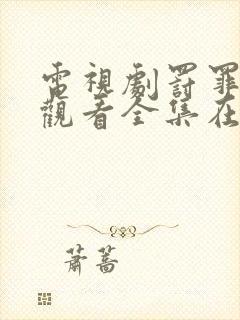 電視劇罰罪
觀看全集在
蕭蒿